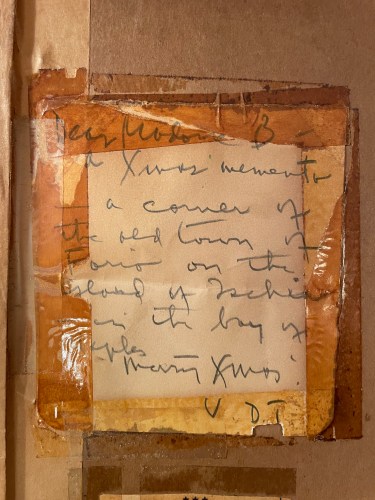 Dear Madame B –
a Xmas memento
a corner of
the old town of
Forio on the
island of Ischia
in the bay of
Naples
Merry Xmas!
V. DT
***